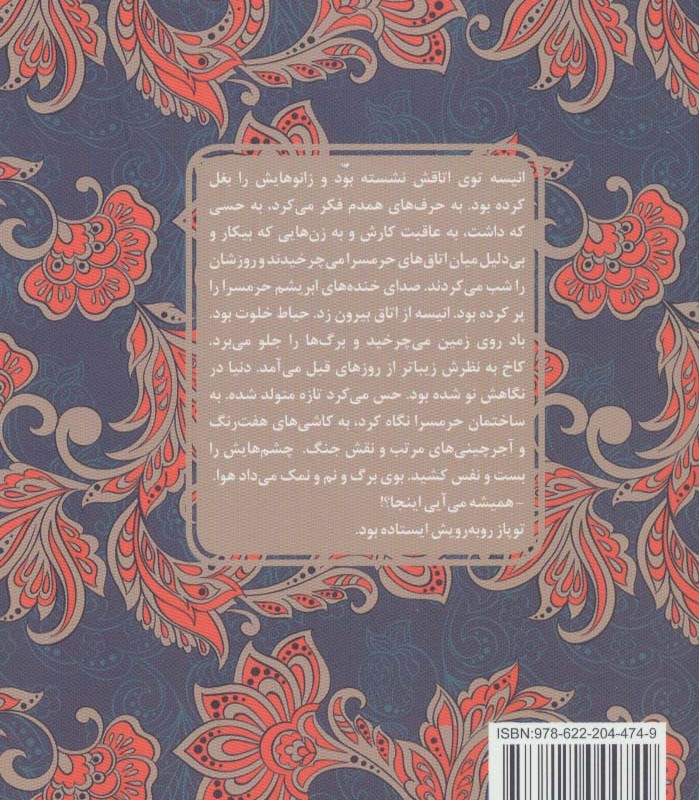 انیسه توی اتاقش نشسته بود و زانوهایش را بغل
کرده بود. به حرف‌های همدم فکر می‌کرد، به حسی
که داشت، به عاقبت کارش و به زن‌هایی که بیکار و
بی‌دلیل میان اتاق‌های حرمسرا می‌چرخیدند و روزشان
را شب می‌کردند. صدای خنده‌های ابریشم حرمسرا را
پر کرده بود. انیسه از اتاق بیرون زد. حیاط خلوت بود.
باد روی زمین می‌چرخید و برگ‌ها را جلو می‌برد.
کاخ به نظرش زیباتر از روزهای قبل می‌آمد. دنیا در
نگاهش نو شده بود. حس می‌کرد تازه متولد شده. به
ساختمان حرمسرا نگاه کرد، به کاشی‌های هفت‌رنگ
و آجرچینی‌های مرتب و نقش جنگ. چشم‌هایش را
بست و نفس کشید. بوی برگ و نم و نمک می‌داد هوا.
- همیشه می‌آیی اینجا؟!
توپاز روبه‌رویش ایستاده بود.
ISBN:978-622-204-474-9